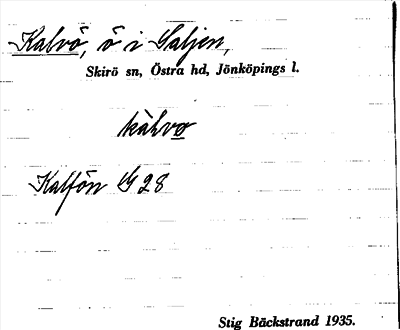 Kalvö, ö i Saljen,
Skirö sn, Östra hd, Jönköpings l.
kàlvo
Kalfön G 28
Stig Bäckstrand 1935.